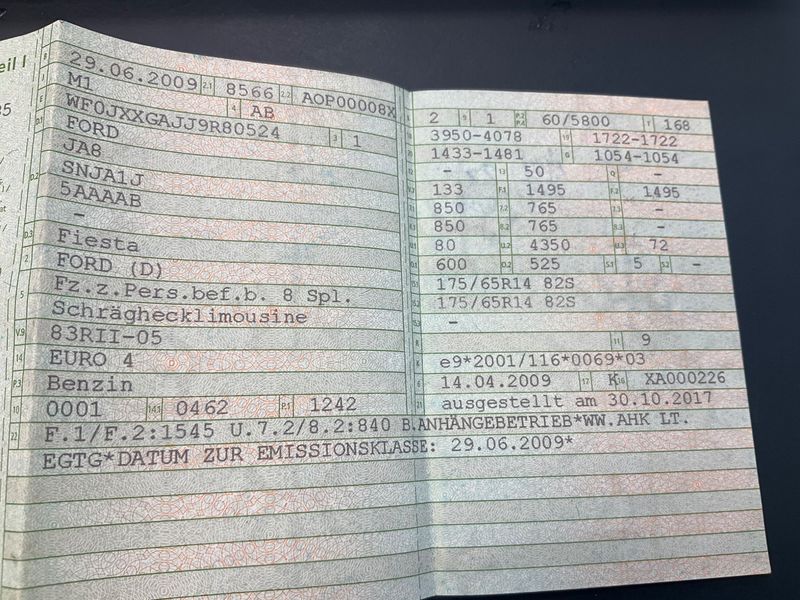 eil I
B 29.06.2009 2.1 8566 2.2 AOP00008X
J M1 4 AB
E WF0JXXGAJJ9R80524 3 1
D.1 FORD
JA8
D.2 SNJA1J
5AAAAB
-
D.3 Fiesta
2 FORD (D)
5 Fz.z.Pers.bef.b. 8 Spl.
Schräghecklimousine
V.9 83RII-05
14 EURO 4
P.3 Benzin
10 0001 14.1 0462 P.1 1242
22 F.1/F.2:1545 U.7.2/8.2:840 B.ANHÄNGEBETRIEB*WW.AHK LT.
EGTG*DATUM ZUR EMISSIONSKLASSE: 29.06.2009*
2 9 1 P.2 P.4 60/5800 T 168
18 3950-4078 19 1722-1722
20 1433-1481 G 1054-1054
12 - 13 50 Q -
V.7 133 F.1 1495 F.2 1495
7.1 850 7.2 765 7.3 -
8.1 850 8.2 765 8.3 -
U.1 80 U.2 4350 U.3 72
O.1 600 O.2 525 S.1 5 S.2 -
15.1 175/65R14 82S
15.2 175/65R14 82S
15.3 -
R 11 9
K e9*2001/116*0069*03
6 14.04.2009 17 K 16 XA000226
21 ausgestellt am 30.10.2017